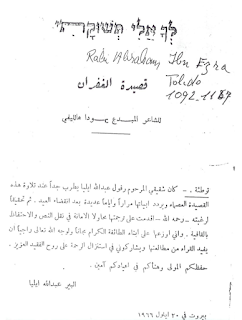 לך אלי תשוקתי
Rabi Abraham Ibn Ezra
Toledo
1092-1167
قصيدة الغفران
للشاعر المبدع يهودا هاليفي
توطئة . - كان شقيقي المرحوم رفول عبدالله ايليا يطرب جداً عند تلاوة هذه
القصيدة العصماء ويردد ابياتها مراراً وأياماً عديدة بعد انقضاء العيد . ثم تحقيقاً
لرغبته - رحمه الله - اقدمت على ترجمتها محاولا الامانة في نقل النص والاحتفاظ
بالقافية . واني اوزعها على ابناء الطائفة الكرام مجاناً ولوجه الله تعالى راجياً ان
يفيد القراء من مطالعتها ويشاركوني في استنزال الرحمة على روح الفقيد العزيز .
حفظكم المولى وهنأكم في اعيادكم آمين .
البير عبدالله ايليا
بيروت في ٢٠ ايلول ١٩٦٦